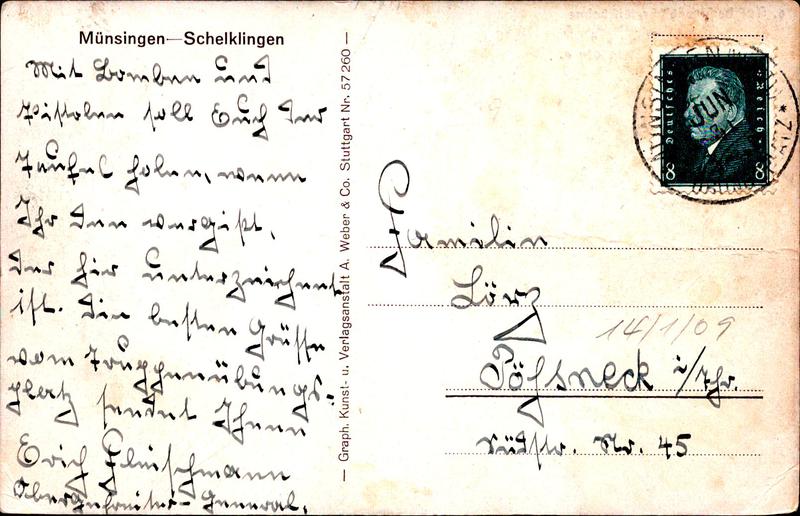 Münsingen—Schelklingen
Mit Bomben und
Pistolen soll Euch der
Teufel holen, wenn
Ihr den vergißt,
der hir unterzeichnet
ist. Die besten Grüße
vom Truppenübungs-
platz sendet Ihnen
Erich
Obergefreiter - General.
— Graph. Kunst- u. Verlagsanstalt A. Weber & Co. Stuttgart Nr. 57 260 —
Deutsches Reich
8 8
JUN
Familie
Lörz
Pößneck i/Thr.
Südstr. Nr. 45
14/1/09